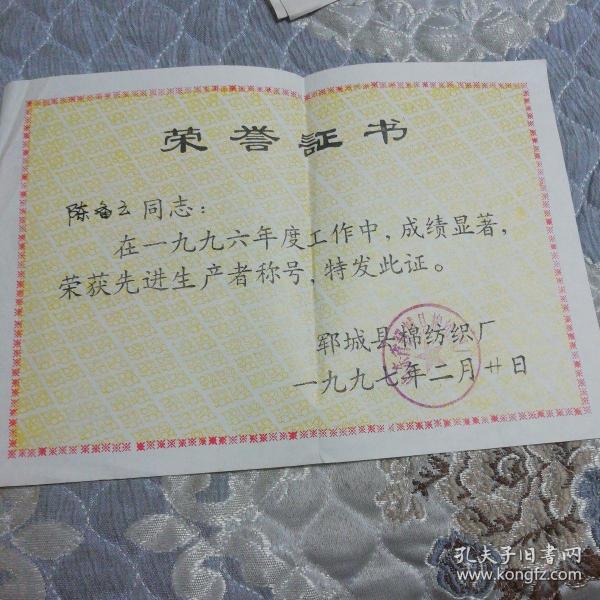 荣誉証书
陈备云同志:
在一九九六年度工作中,成绩显著,
荣获先进生产者称号,特发此证。
郓城县棉纺织厂
一九九七年二月廿日
孔夫子旧书网
www.kongfz.com